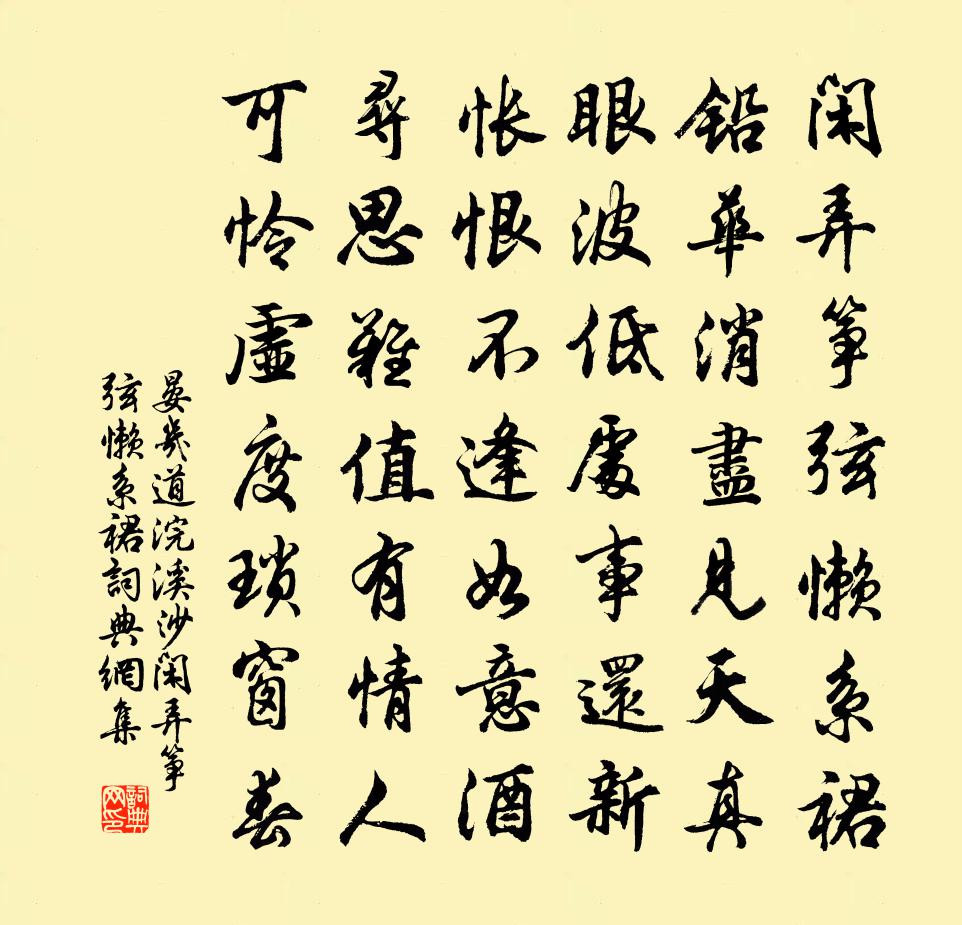 閑弄筝弦懶系裙
鉛華消盡見天真
眼波低處事還新
悵恨不逢如意酒
尋思難值有情人
可怜虚度瑣窗春
晏幾道浣溪沙閑弄筝
弦懶系裙詞典網集
詞典网印